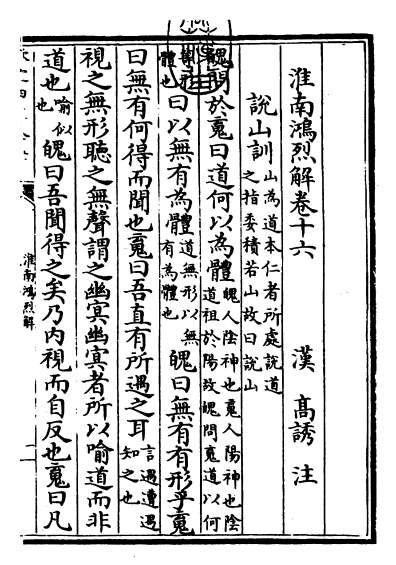 淮南鴻烈解卷十六 漢 高誘 注
說山訓 山為道本仁者所處說道之指委積若山故曰說山
魄問於䰟曰道何以為體 魄人陰神也䰟人陽神也陰道祖於陽故魄問䰟道以何
體也 曰以無有為體 道無形以無有為體也 魄曰無有有形乎䰟
曰無有何得而聞也䰟曰吾直有所遇之耳 言遇遭遇知之也
視之無形聽之無聲謂之幽冥幽冥者所以喻道而非
道也 喻似也 魄曰吾聞得之矣乃內視而自反也䰟曰凡
淮南鴻烈解